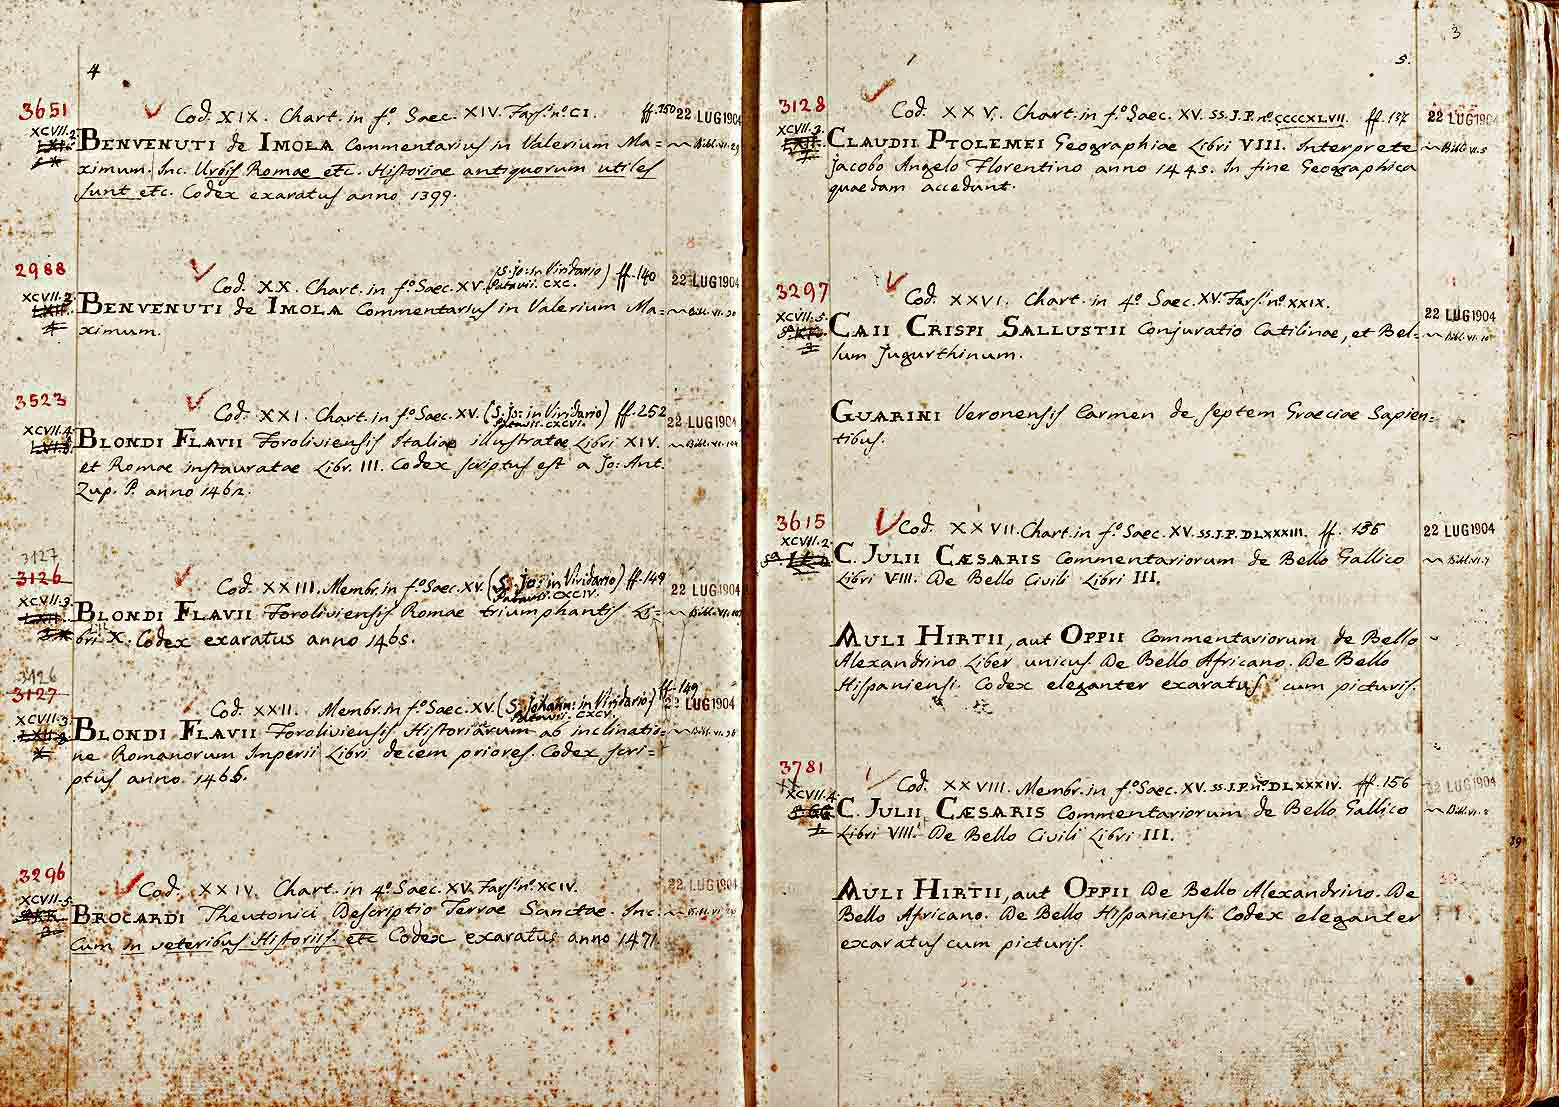 4
3651 Cod. XIX. Chart. in fo. Saec. XIV. Fars. no. CI. ff. 150 22 LUG 1904
XCVII.2.
BENVENUTI de IMOLA Commentarius in Valerium Ma=
ximum. Inc. Urbis Romae etc. Historiae antiquorum utiles
sunt etc. Codex exaratus anno 1399.
2988 Cod. XX. Chart. in fo. Saec. XV. (S. Jo: in Viridario) ff. 140 22 LUG 1904
Patavii. CXC.
XCVII.2.
BENVENUTI de IMOLA Commentarius in Valerium Ma=
ximum.
3523 Cod. XXI. Chart. in fo. Saec. XV. (S. Jo: in Viridario) ff. 252 22 LUG 1904
Patavii. CXCVI.
XCVII.4.
BLONDI FLAVII Foroliviensis Italiae illustratae Libri XIV.
et Romae instauratae Libr. III. Codex scriptus est a Jo: Ant.
Zup. P. anno 1462.
3127
3126 Cod. XXIII. Membr. in fo. Saec. XV. (S. Jo: in Viridario) ff. 149 22 LUG 1904
Patavii. CXCIV.
XCVII.3.
BLONDI FLAVII Foroliviensis Romae triumphantis Li=
bri X. Codex exaratus anno 1465.
3126
3127 Cod. XXII. Membr. in fo. Saec. XV. (S. Johann: in Viridario) ff. 149 22 LUG 1904
Patavii. CXCV.
XCVII.3.
BLONDI FLAVII Foroliviensis Historiarum ab inclinatio=
ne Romanorum Imperii Libri decem priores. Codex scri=
ptus anno. 1466.
3296 Cod. XXIV. Chart. in 4o. Saec. XV. Fars. no. XCIV. 22 LUG 1904
XCVII.5.
BROCARDI Theutonici Descriptio Terrae Sanctae. Inc.
Cum in veteribus Historiis. etc Codex exaratus anno 1471.
3
5.
3128 Cod. XXV. Chart. in fo. Saec. XV. SS. J. P. no. CCCCXLVII. ff. 137 22 LUG 1904
XCVII.3.
CLAUDII PTOLEMEI Geographiae Libri VIII. Interprete Bibl. VI. 5
Jacobo Angelo Florentino anno 1445. In fine Geographica
quaedam accedunt.
3297 Cod. XXVI. Chart. in 4o. Saec. XV. Fars. no. XXIX. 22 LUG 1904
XCVII.5.
CAII CRISPI SALLUSTII Conjuratio Catilinae, et Bel= Bibl. VI. 10
lum Jugurthinum.
GUARINI Veronensis Carmen de septem Graeciae Sapien=
tibus.
3615 Cod. XXVII. Chart. in fo. Saec. XV. SS. J. P. DLXXXIII. ff. 156 22 LUG 1904
XCVII.2.
C. JULII CÆSARIS Commentariorum de Bello Gallico Bibl. VI. 7
Libri VIII. De Bello Civili Libri III.
AULI HIRTII, aut OPPII Commentariorum de Bello
Alexandrino Liber unicus. De Bello Africano. De Bello
Hispaniensi. Codex eleganter exaratus cum picturis.
3781 Cod. XXVIII. Membr. in fo. Saec. XV. SS. J. P. no. DLXXXIV. ff. 156 22 LUG 1904
XCVII.4.
C. JULII CÆSARIS Commentariorum de Bello Gallico Bibl. VI. 8
Libri VIII. De Bello Civili Libri III.
AULI HIRTII, aut OPPII De Bello Alexandrino. De
Bello Africano. De Bello Hispaniensi. Codex eleganter
exaratus cum picturis.